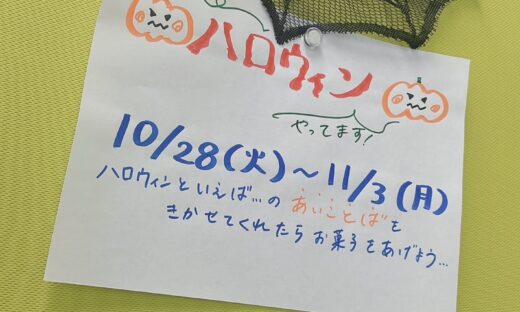 ハロウィン
やってます!
10/28(火)～11/3(月)
ハロウィンといえば…の あいことばを
きかせてくれたら お菓子をあげよう…